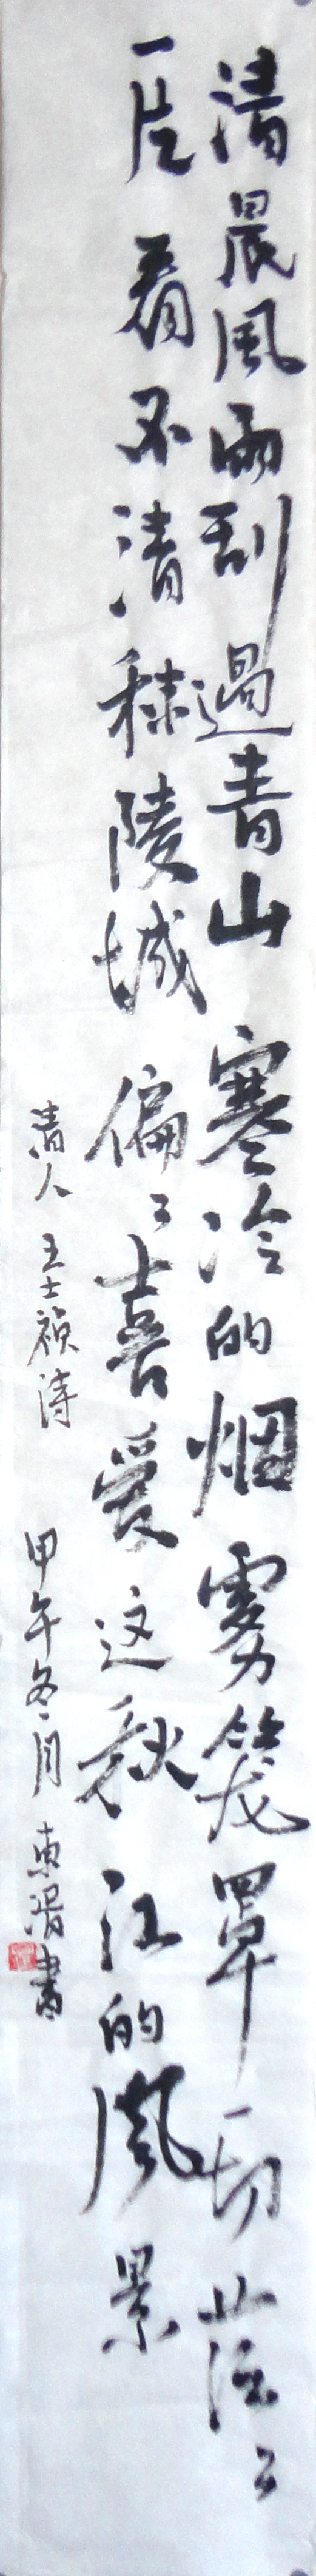 清晨風雨刮過青山寒冷的烟雾笼罩一切茫々
一片看不清秣陵城偏々喜爱这秋江的風景
清人王士祯诗
甲午冬月東湝書